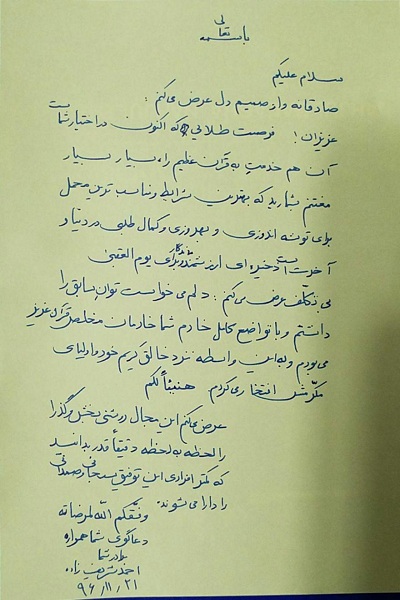 باسمه تعالی
سلام علیکم
صادقانه و از صمیم دل عرض می‌کنم :
عزیزان! فرصت طلائی که اکنون در اختیار شماست
آن هم خدمت به قرآن عظیم را، بسیار بسیار
مغتنم بشمارید که بهترین شرایط و مناسب ترین محمل
برای توشه اندوزی و بهروزی و کمال طلبی در دنیا و
آخرت است ذخیره ای ارزشمند و ماندگار برای یوم العقبی
بی تکلف عرض می‌کنم : دلم می خواست توان سابق را
داشتم و با تواضع کامل خادم شما خادمان مخلص قرآن عزیز
می بودم و به این واسطه نزد خالق کریم خود و اولیای
مکرّمش افتخار می کردم هنیئاً لکم
عرض می‌کنم این مجال درخشش و گذرا
را لحظه به لحظه دقیقاً قدر بدانید
که کمتر افرادی این توفیق
را دارا می شوند.
وفّقکم الله لمرضاته
دعاگوی شما همواره
برادر شما
احمد شریف زاده
۹۶/۱۱/۲۱